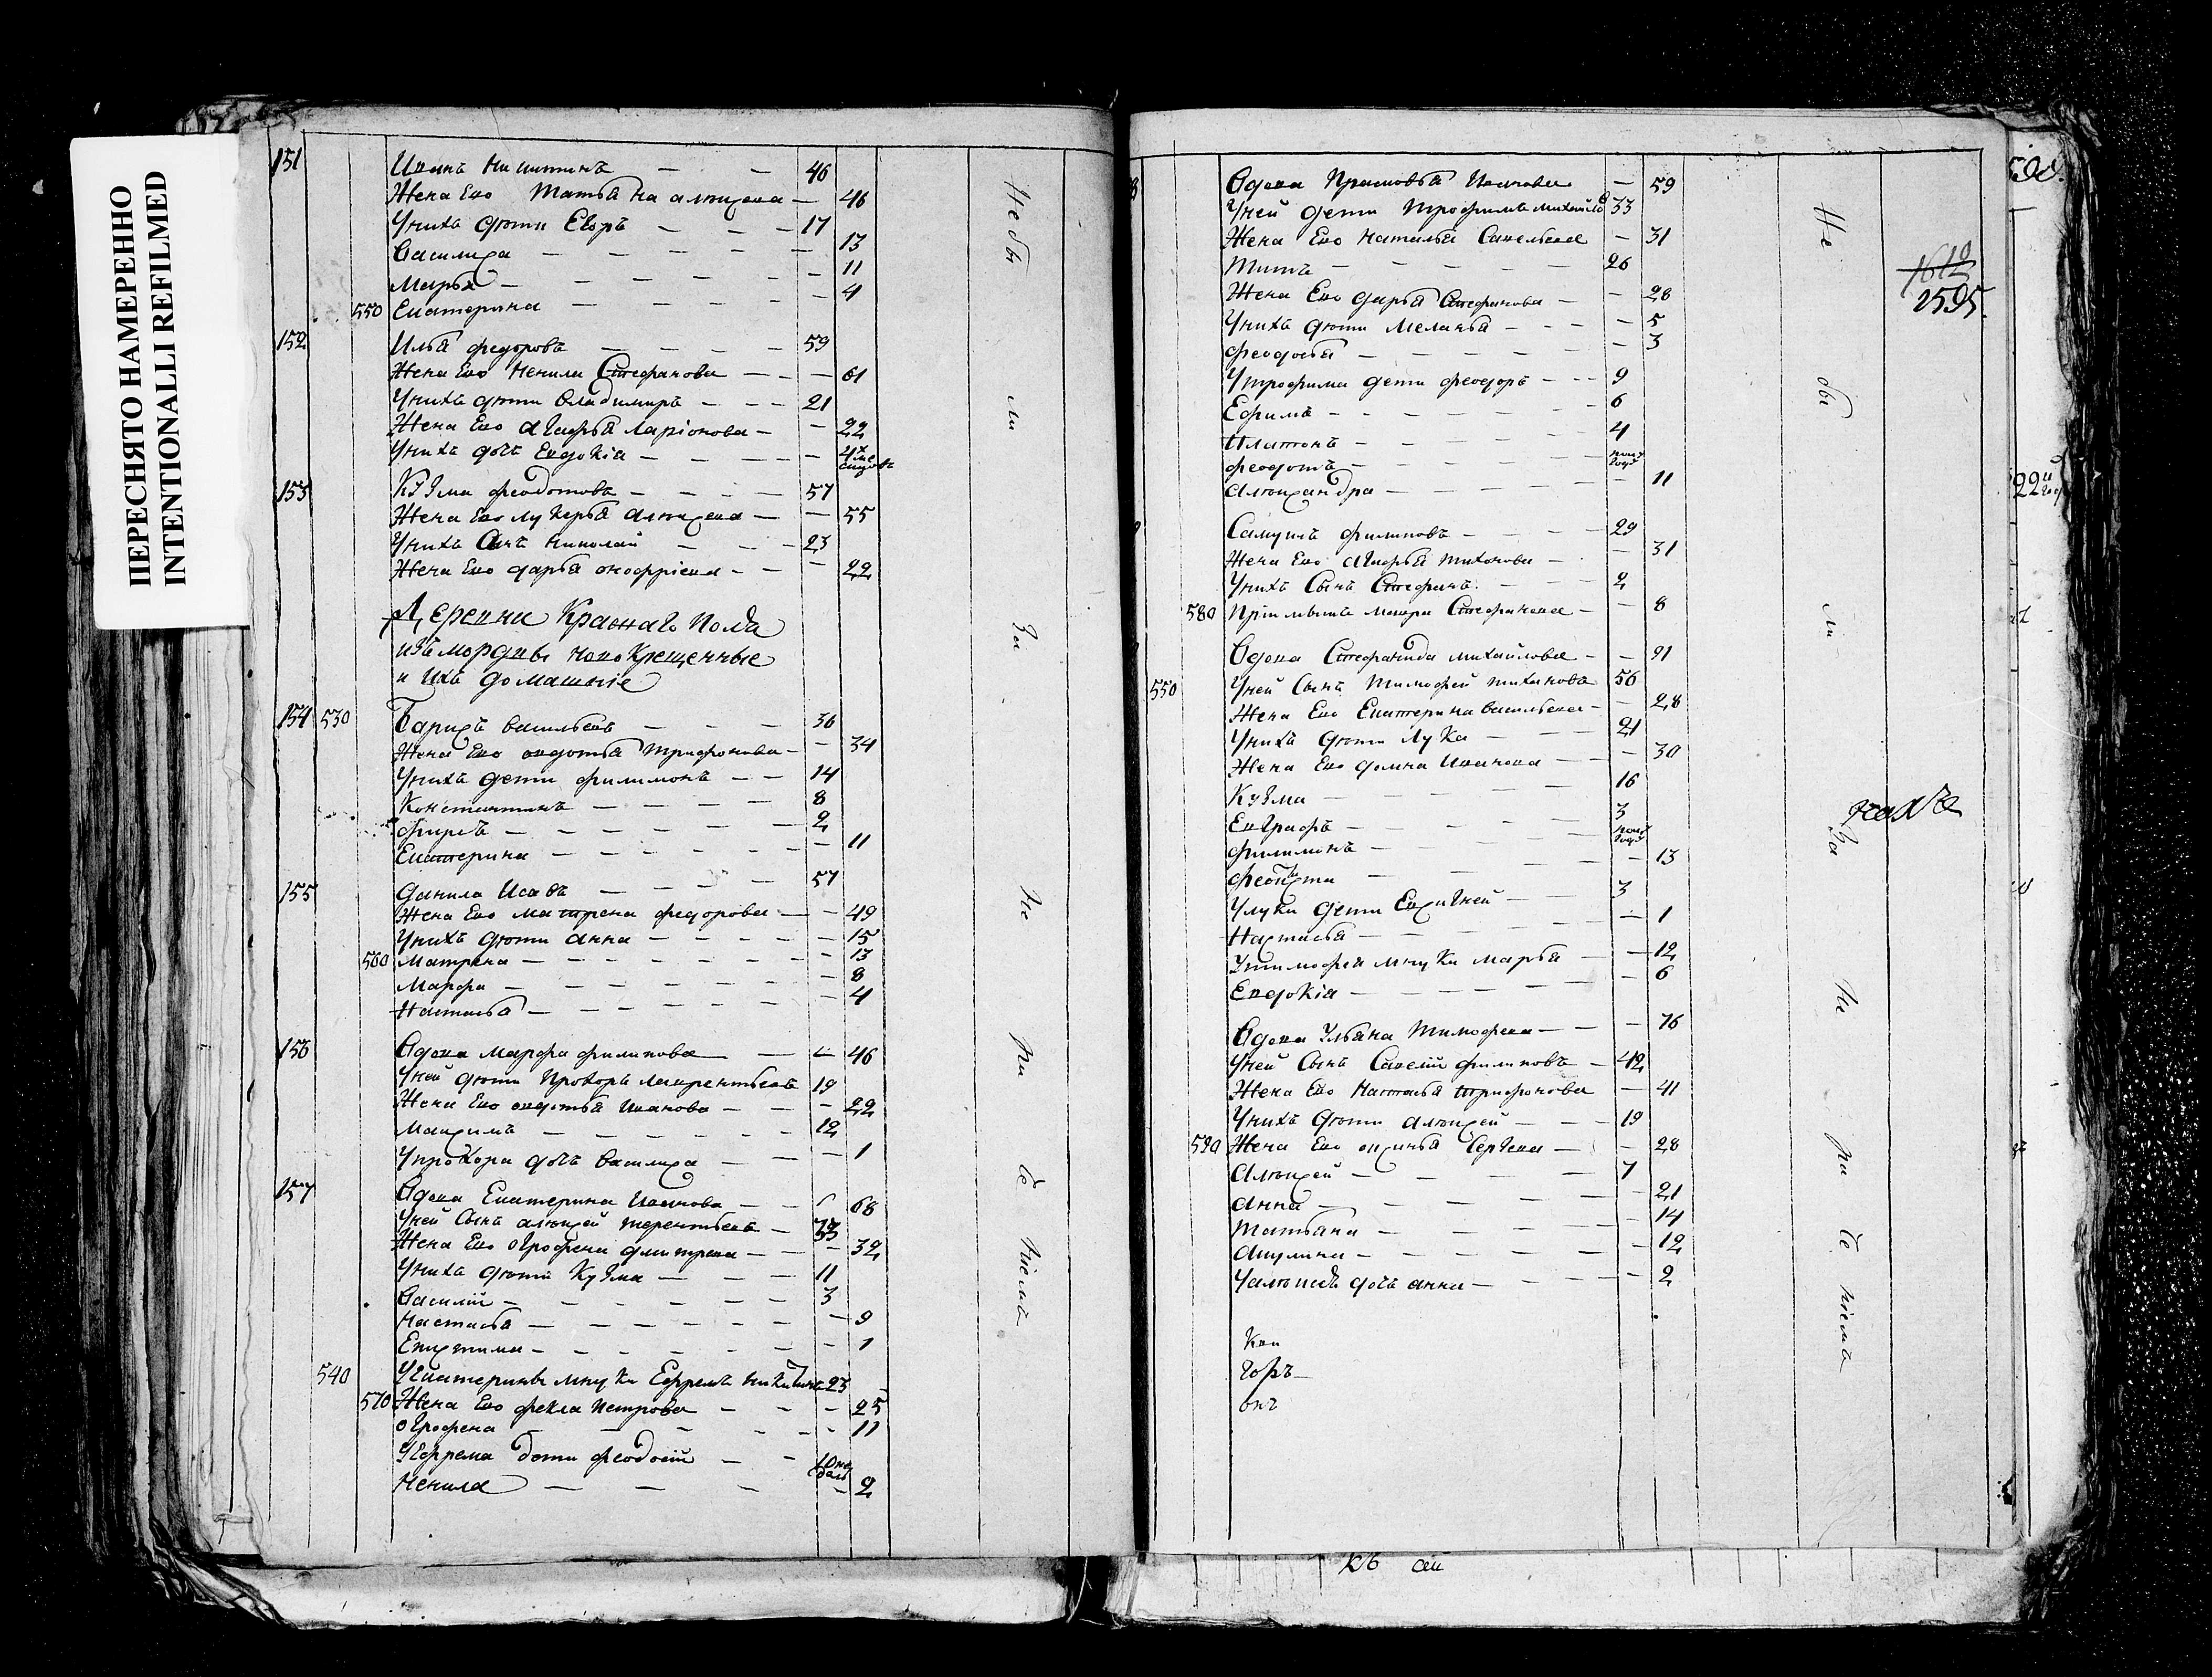 ПЕРЕСНЯТО НАМЕРЕННО
INTENTIONALLI REFILMED
151 Иванъ Никитинъ — — 46
Жена Ево Татьяна алексеева — 46
Униха дети Егоръ — — — 17
Василиса — — — — — 13
Марья — — — — — 11
550 Екатерина — — — — — 4
152 Илья федоровъ — — — — 59
Жена Ево Ненила Стефанова — — — 61
Униха дети Владимиръ — — — 21
Жена Ево агафья Ларіонова — — 22
Униха дочь Евдокіа — — — — 4х месицовъ
153 Кузма феодотовъ — — — — 57
Жена Ево лукерья алексеева — — 55
Униха Сынъ Николай — — — 23
Жена Ево дарья онофріева — — — 22
Деревни Краснаго Пола
изъ мордвы новокрещенные
и Ихъ домашніе
154 530 Барисъ васильевъ — — — 36
Жена Ево овдотья трифонова — — 34
Униха дети филимонъ — — 14
Констентинъ — — — — 8
фирсъ — — — — — 2
Екатерина — — — — — — 11
155 Данила Исаевъ — — — 57
Жена Ево матрена федорова — — 49
Униха дети анна — — — — — 15
560 Матрена — — — — — — 13
Марфа — — — — — — 8
Настасья — — — — 4
156 Вдова марфа филипова — — 46
Уней дети Прохоръ лаврентьевъ 19
Жена Ево овдотья Иванова — — — 22
Максимъ — — — — — 12
Упрохора дочь василиса — — — 1
157 Вдова Екатерина Иванова — — 68
Уней Сынъ алексей терентьевъ — 33
Жена Ево огрофена дмитрева — — — 32
Униха дети Кузма — — — 11
Василій — — — — — — 3
Настасья — — — — — — 9
Ефтина — — — — — — 1
540 Уекатерины мнуки Ефремъ никитинъ 23
570 Жена Ево фекла Петрова — — — 25
огрофена — — — — — 11
Уефрема дети феодосій — —
Ненила — — — — 2
Не бы ли За Не ри Се ніемъ
Вдова Прасковья Иванова — 59
Уней дети трофимъ михайловъ 33
Жена Ево наталья Савельева — 31
Титъ — — — — — 26
Жена Ево дарья Стефанова — — 28
Униха дети Меланья — — — — 5
феодосья — — — — — — 3
Утрофима дети феодоръ — — — 9
Ефимъ — — — — — — 6
Платонъ — — — — — 4
феодотъ — — — — — полу года
александра — — — — — — 11
Самуилъ филиповъ — — — — 29
Жена Ево агафья тихонова — — 31
Униха Сынъ Стефанъ — — — 2
580 Приемышъ мавра Стефанова — — 8
Вдова Стефанида михайлова — — 91
550 Уней Сынъ Тимофей тихановъ 56
Жена Ево Екатерина васильева — — 28
Униха дети Лука — — — 21
Жена Ево домна Иванова — — — 30
Кузма — — — — — 16
Евграфъ — — — — — 3
филимонъ — — — — полу года
— 13
Улуки дети — — 3
Настасья — — — — — 1
Утимофея мнуки марья — — 12
Евдокіа — — — — — — 6
Вдова Ульяна Тимофеева — — — 76
Уней Сынъ Савелій филиповъ — 42
Жена Ево Настасья трифонова — 41
Униха дети алексей — — — 19
590 Жена Ево оксинья Сергеева — — 28
Алексей — — — — 7
анна — — — — — 21
Татьяна — — — — — 14
акулина — — — — — 12
Уалексея дочь анна — — — — — 2
Не бы ли За Не ри Се ніемъ
1612
2595.